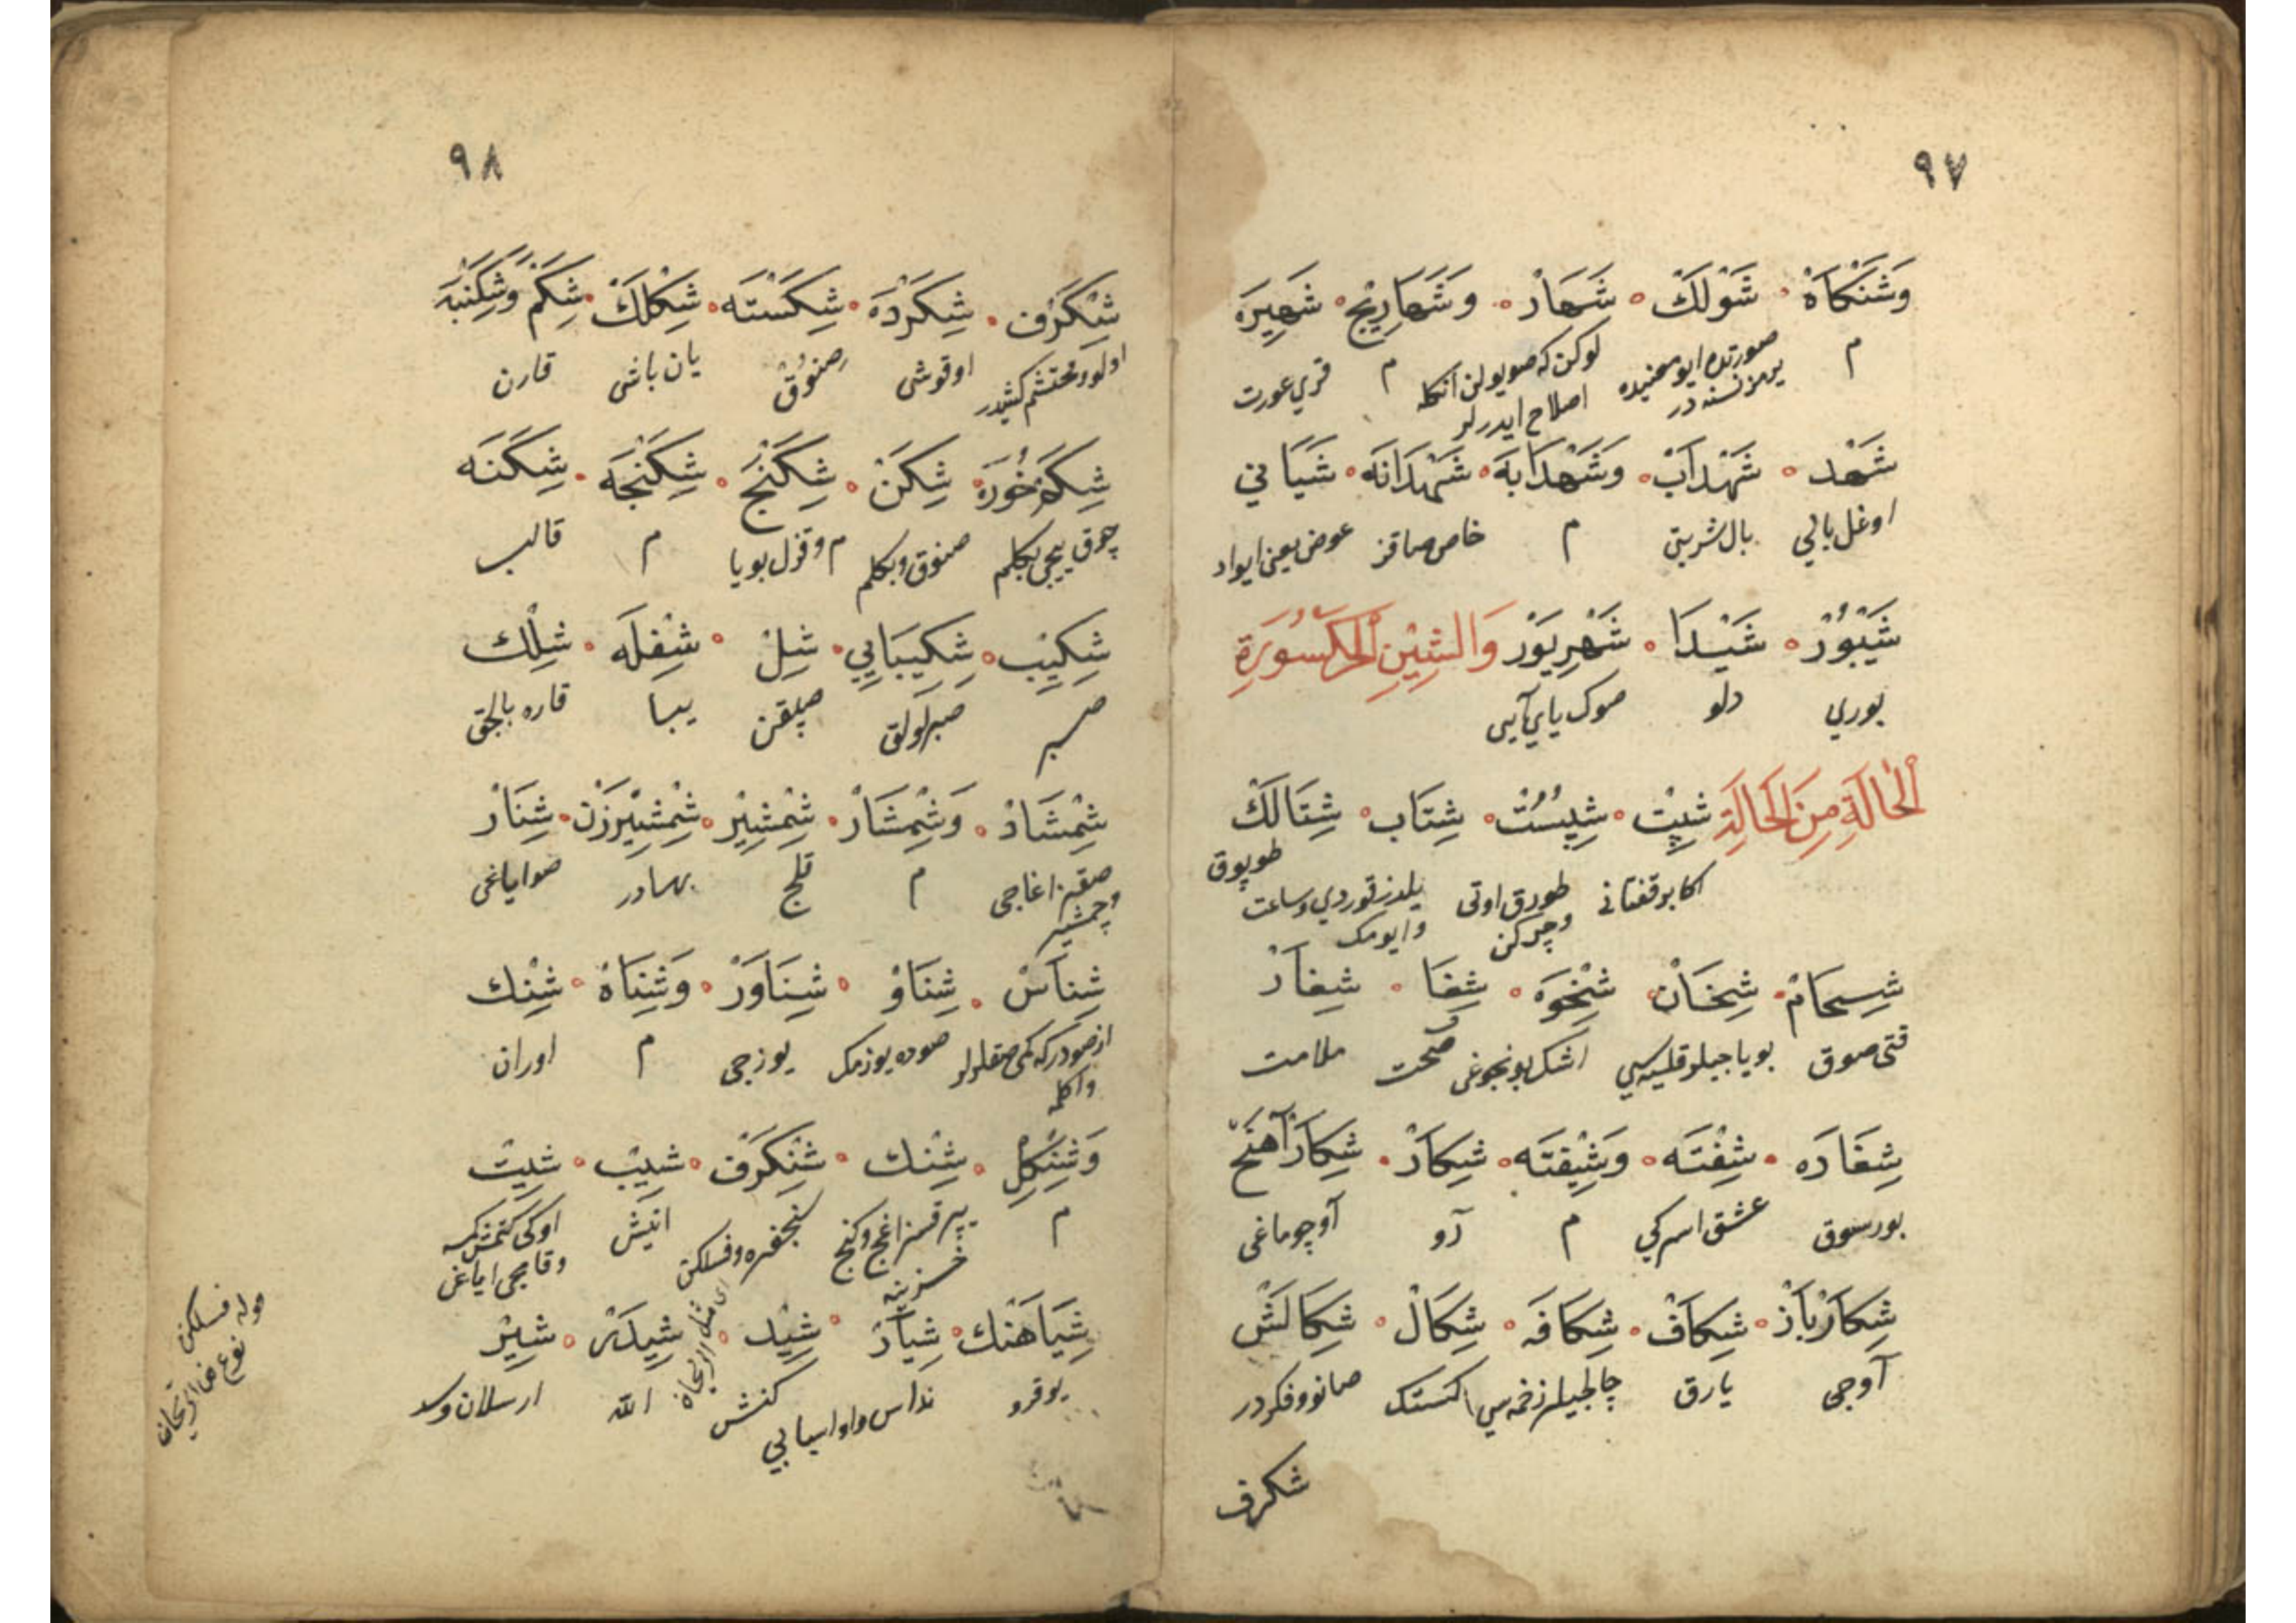 ٩٧
وَشَنْكَاهْ شَوْلَكْ شَهَارْ وَشَهَارِيْج شَهِيرَه
م صورتدم ايو معنيده يرمز نسنه در لوكن كه صو يولن آنكله اصلاح ايدرلر م قري عورت
شَهْد شَهْدَابْ وَشَهْدَابَه شَهْدَانَه شَيَانِي
اوغل بالي بال شربتى م خاص صاقز عوض يعنى ايواد
شَيْبُوْرْ شَيْدَا شَهْرِيَوْر وَالشِّيْنِ الْمَكْسُورَةِ
بوري دلو صوك ياي آيى
اَلْحَالَةِ مِنَ الْحَالَةِ شِپِتْ شِبُسْتْ شِتَاب شِتَالَكْ
اكابر قفتانى طورق اوتى وچركن يلدز قوردي وساعت وايومك طوپوق
شِسحَامْ شِخَانْ شِخْوَه شِفَا شِغَارْ
قتى صوق بوياجيلر قليه سى اشك بونجوغى صحت ملامت
شِغَارَه شِفْتَه وَشِيْفتَه شِكَارْ شِكَارْآهَنْج
بورسوق عشق اسركى م آو آوچوماغى
شِكَارْبَازْ شِكَافْ شِكَافَه شِكَالْ شِكَالَشْ
آوجى يارق چالجيلر زخمه سى كستك صانو وفكردر
شكرف
٩٨
شِكَرْف شِكَرْدَه شِكَسْتَه شِكْلَكْ شِكَمْ وَشِكَنْبَه
اولو ومحتشم كشيدر اوقوشى صنوق يان باشى قارن
شِكَمْخُورَه شِكَنْ شِكَنْج شِكَنْجَه شِكَنَه
چوق ييجى بكلم صنوق وبكلم م وقزل بويا م قالب
شِكِيْب شِكِيبَايِي شِلْ شِفِلَه شِلْك
صبر صبرلولق صپلقن يبا قاره بالچق
شِمْشَادْ وَشِمْشَارْ شِمْشِيْر شِمْشِيْرزَنْ شِنَارْ
صقز اغاجى وچمشير م قلج بهادر صو اياغى
شِنَاسْ شِنَاوْ شِنَاوَرْ وَشِنَاهْ شِنْك
از صودركه كمى صقلرلر واكله صوده يوزمك يوزجى م اوران
وَشِنْكِلْ شِنْك شِنْكَرْف شِيْب شِيتْ
م يپرقسز اغج وكنج خسزنه زنجفره وفسلكن انيش اوكى كتمش كمسه وقامچى اياغى
شِيَاهَنْك شِيَارْ شِيْد شِيدَرْ شِيْر
يوقرو نداس واو اسيابي كنش الله ارسلان وسد
فسلكن نوع من الريحان